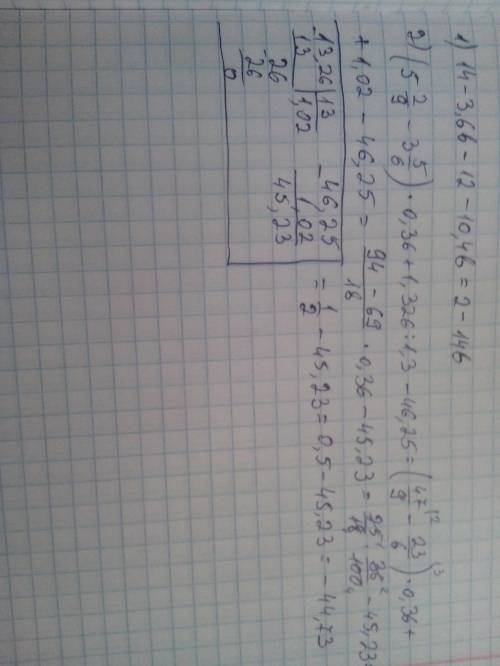 1) 14 - 3,6b - 12 - 10,4b = 2 - 14b
2) (5 2/9 - 3 5/6) · 0,36 + 1,326 : 1,3 - 46,25 = (47/9 \2 - 23/6 \3) · 0,36 +
+ 1,02 - 46,25 = (94 - 69)/18 · 0,36 - 45,23 = 25/18 · 36/100 - 45,23
= 1/2 - 45,23 = 0,5 - 45,23 = - 44,73
- 13,26 | 13
13 | 1,02
- 26
26
0
- 46,25
1,02
45,23